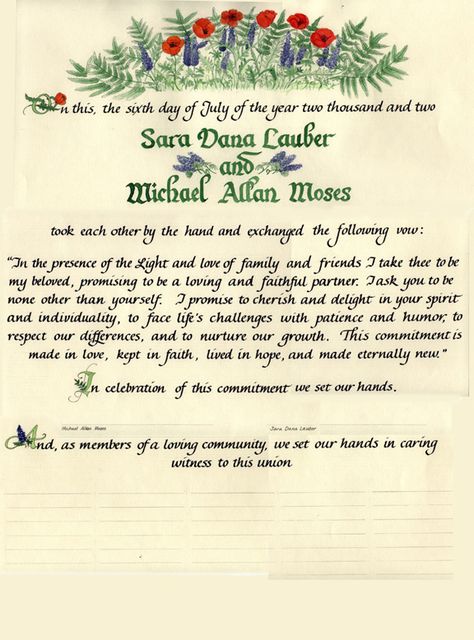 On this, the sixth day of July of the year two thousand and two
Sara Dana Lauber
and
Michael Allan Moses
took each other by the hand and exchanged the following vow:
"In the presence of the Light and love of family and friends I take thee to be
my beloved, promising to be a loving and faithful partner. I ask you to be
none other than yourself. I promise to cherish and delight in your spirit
and individuality, to face life's challenges with patience and humor, to
respect our differences, and to nurture our growth. This commitment is
made in love, kept in faith, lived in hope, and made eternally new."
In celebration of this commitment we set our hands.
Michael Allan Moses Sara Dana Lauber
And, as members of a loving community, we set our hands in caring
witness to this union